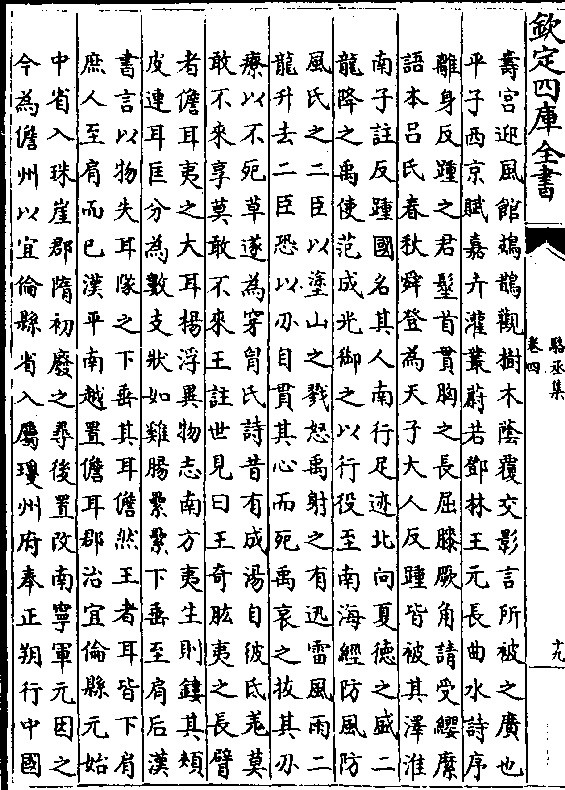 欽定四庫全書
駱丞集
卷四
十九
壽宮迎風館鳷鵲觀樹木蔭覆交影言所被之廣也
平子西京賦嘉卉灌叢蔚若鄧林王元長曲水詩序
離身反踵之君髽首貫胸之長屈膝厥角請受纓縻
語本呂氏春秋舜登為天子大人反踵皆被其澤淮
南子註反踵國名其人南行足迹北向夏德之盛二
龍降之禹使范成光御之以行役至南海經防風防
風氏之二臣以塗山之戮怒禹射之有迅雷風雨二
龍升去二臣恐以刃自貫其心而死禹哀之拔其刃
療以不死草遂為穿胷氏詩昔有成湯自彼氐羌莫
敢不來享莫敢不來王註世見曰王奇肱夷之長臂
者儋耳夷之大耳楊浮異物志南方夷生則鏤其頰
皮連耳匡分為數支狀如雞腸纍纍下垂至肩后漢
書言以物失耳隊之下垂其耳儋然王者耳皆下肩
庶人至肩而已漢平南越置儋耳郡治宜倫縣元始
中省入珠崖郡隋初廢之尋後置改南寧軍元因之
今為儋州以宜倫縣省入屬瓊州府奉正朔行中國